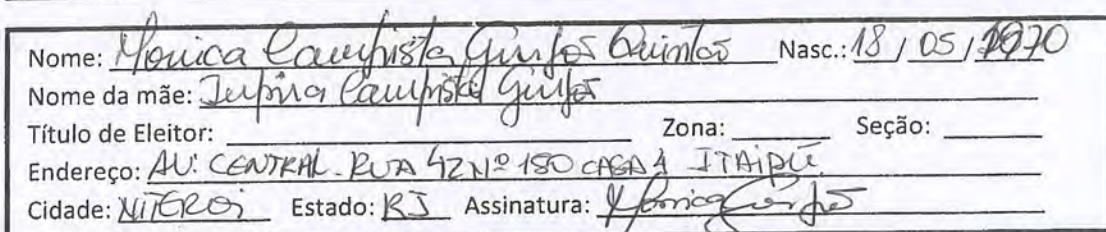 Nome: Monica Campista Quintão Nasc.: 18 / 05 / 1970
Nome da mãe: Campista
Título de Eleitor: Zona: Seção:
Endereço: AV: CENTRAL. RUA 42 Nº 180 CASA 4 ITAIPÚ
Cidade: NITEROI Estado: RJ Assinatura: Monica